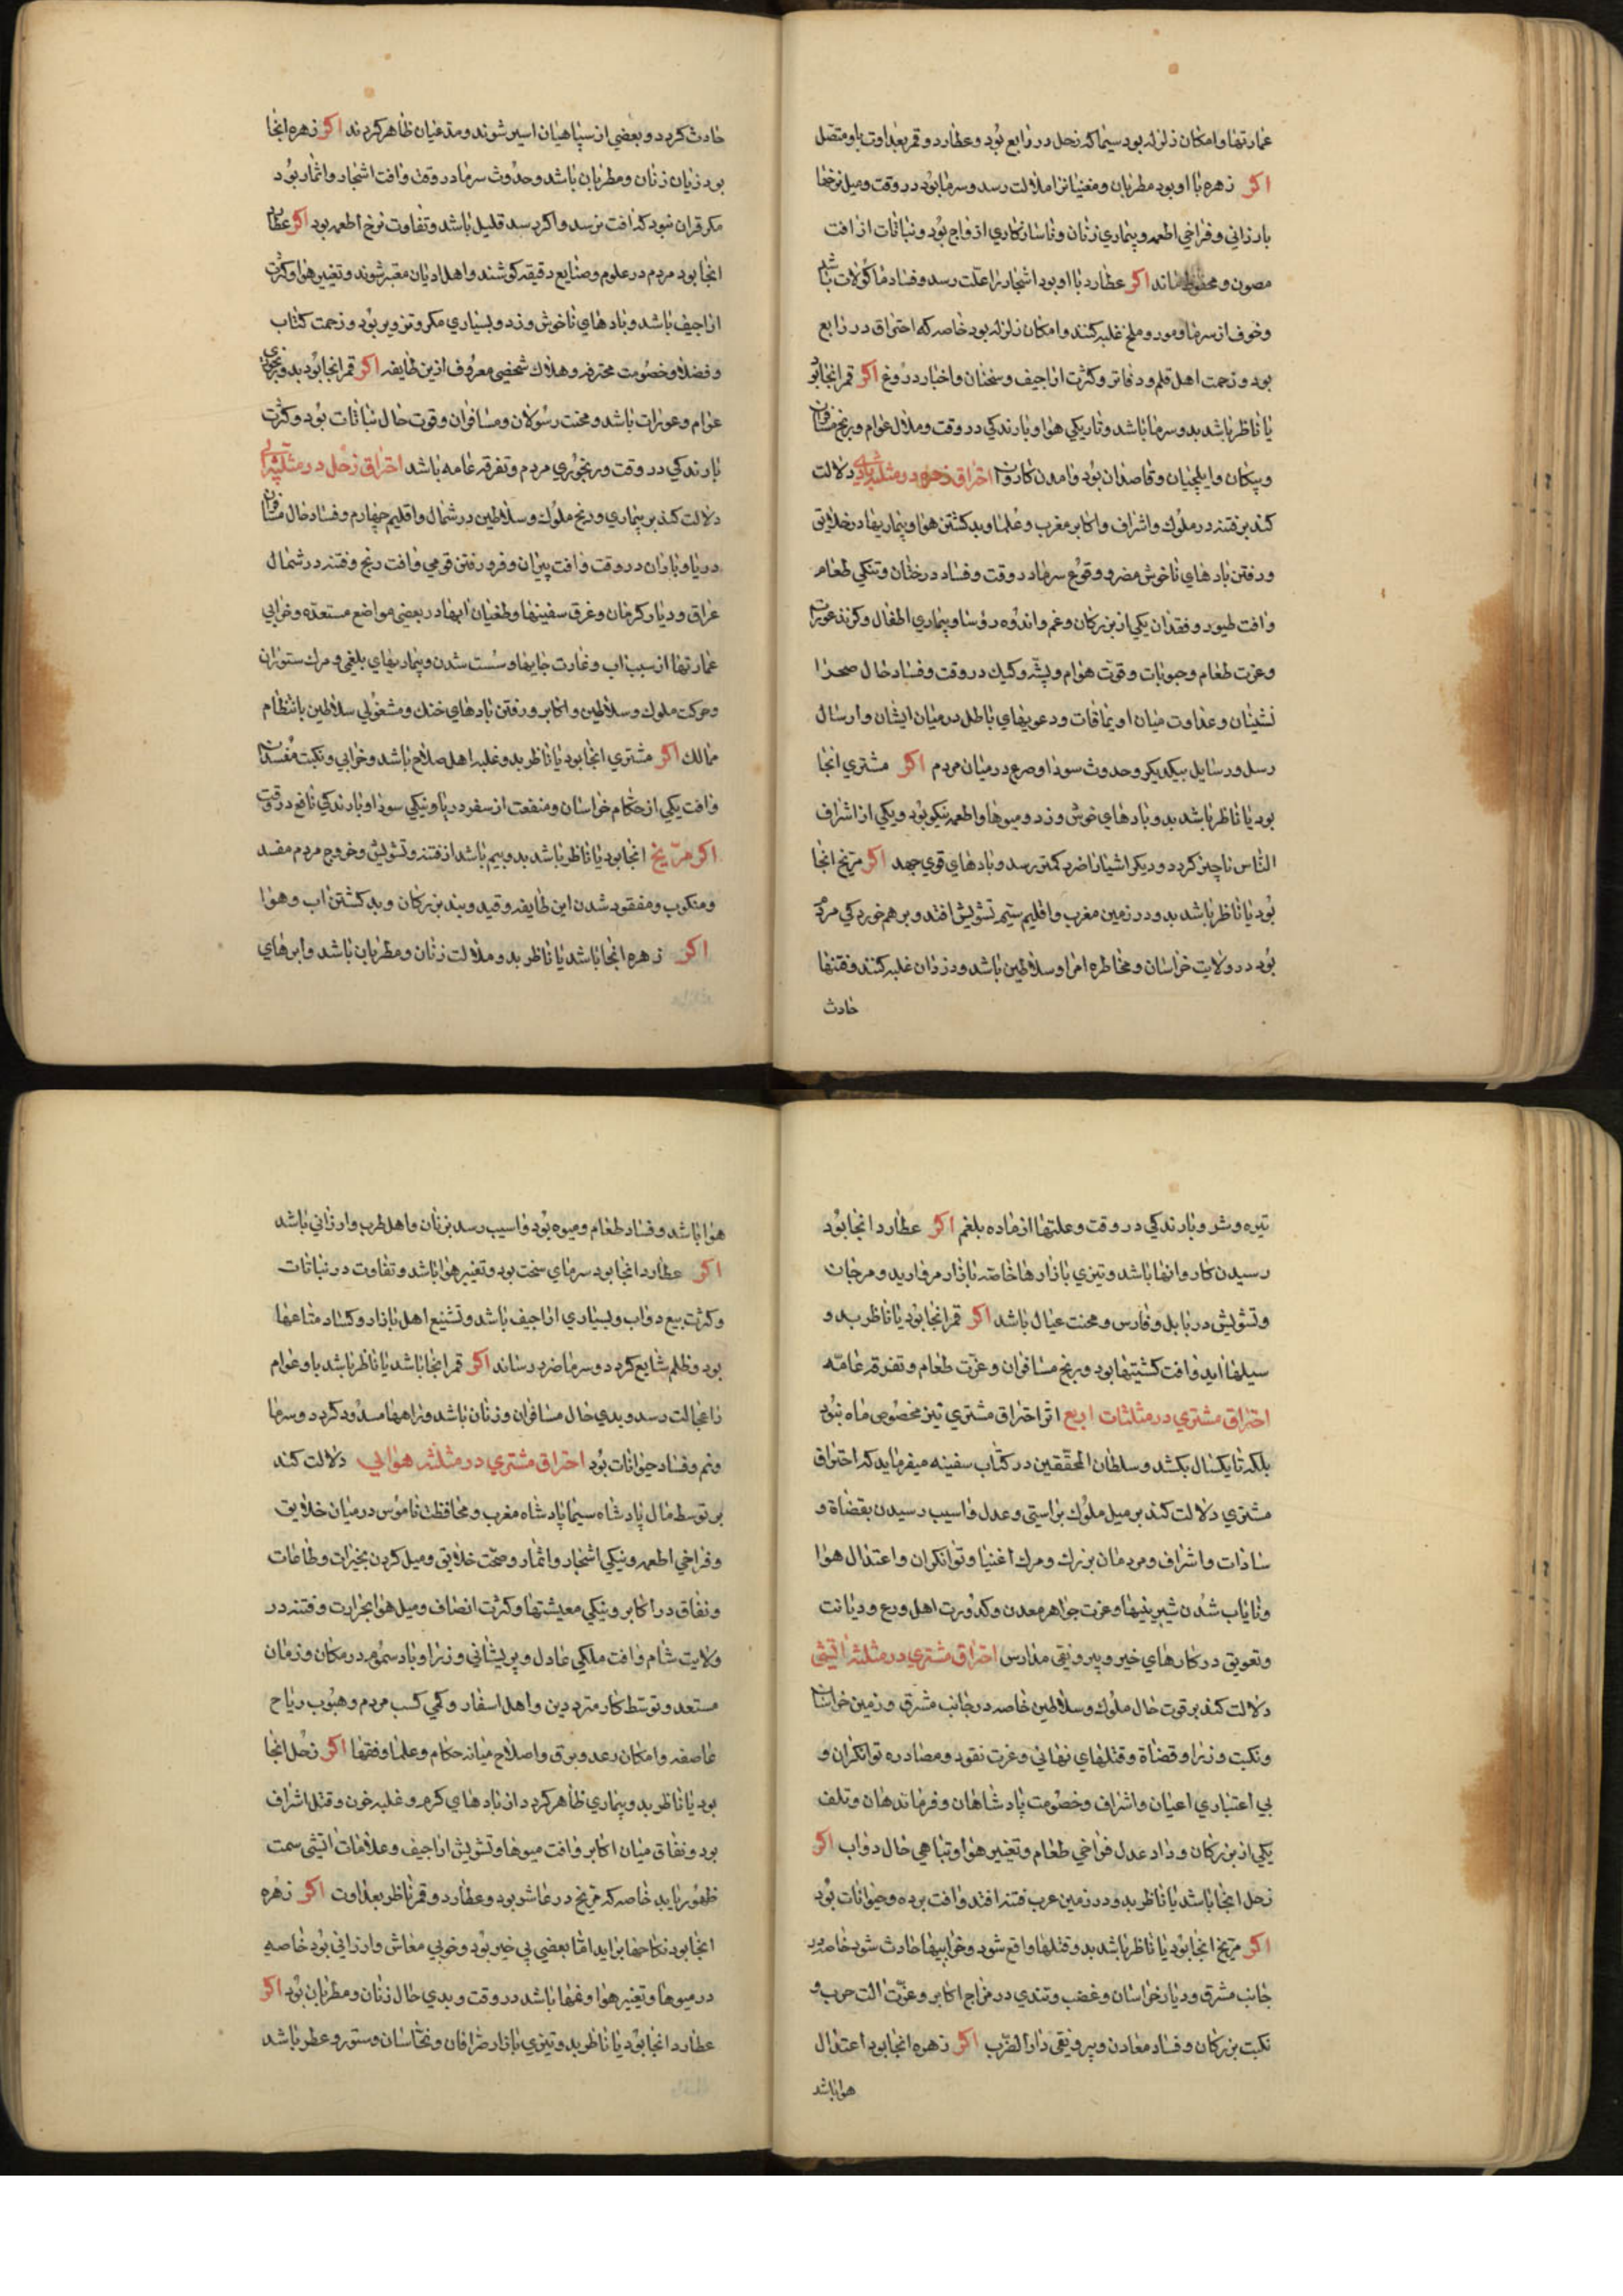 عمارتها و امکان زلزله بود سیما که زحل در رابع بود و عطارد و قمر بعداوت باو متصل
اکر زهره با او بود مطربان و مغنیانرا ملالت رسد و سرما بود در وقت و میل نرخها
بارزانی و فراخی اطعمه و بیماری زنان و ناسازکاری ازواج بود و نباتات از افت
مصون و محفوظ ماند اکر عطارد با او بود اشجار را علت رسد و فساد ماکولات باشد
و خوف از سرما و مور و ملخ غلبه کنند و امکان زلزله بود خاصه که احتراق در رابع
بود و زحمت اهل قلم و دفاتر و کثرت اراجیف و سخنان و اخبار دروغ اکر قمر انجا بود
یا ناظر باشد بد و سرما باشد و تاریکی هوا و بارندکی در وقت و ملال عوام و رنج مسافران
و پیکان و ایلچیان و قاصدان بود و امدن کاروان احتراق زحل در مثلثه بادی دلالت
کند بر فتنه در ملوک و اشراف و اکابر مغرب و علما و بد کشتن هوا و بیماریها در خلایق
و رفتن بادهای ناخوش مضر و وقوع سرما در وقت و فساد درختان و تنکی طعام
و افت طیور و فقدان یکی از بزرکان و غم و اندوه رؤسا و بیماری اطفال و کزند عورات
و عزت طعام و حبوبات و قوت هوام و پشه و کیک در وقت و فساد حال صحرا
نشینان و عداوت میان اویماقات و دعویهای باطل در میان ایشان و ارسال
رسل و رسایل بیکدیکر و حدوث سودا و صرع در میان مردم اکر مشتری انجا
بود یا ناظر باشد بد و بادهای خوش وزد و میوها و اطعمه نیکو بود و یکی از اشراف
الناس ناچیز کردد و دیکر اشیا را ضرر کمتر رسد و بادهای قوی جهد اکر مریخ انجا
بود یا ناظر باشد بد و در زمین مغرب و اقلیم سیم تشویش افتد و بر هم خوردکی مردم
بود در ولایت خراسان و مخاطره امرا و سلاطین باشد و دزدان غلبه کنند و فتنها
حادث
حادث کردد و بعضی از سپاهیان اسیر شوند و مدعیان ظاهر کردند اکر زهره انجا
بود زیان زنان و مطربان باشد و حدوث سرما در وقت و افت اشجار و اثمار بود
مکر قران نبود که افت نرسد و اکر رسد قلیل باشد و تفاوت نرخ اطعمه بود اکر عطارد
انجا بود مردم در علوم و صنایع دقیقه کوشند و اهل ادیان معتبر شوند و تغییر هوا و کثرت
اراجیف باشد و بادهای ناخوش وزد و بسیاری مکر و تزویر بود و زحمت کتاب
و فضلا و خصومت محترفه و هلاک شخصی معروف ازین طایفه اکر قمر انجا بود بد و رنجوری
عوام و عورات باشد و محنت رسولان و مسافران و قوت حال نباتات بود و کثرت
بارندکی در وقت و رنجوری مردم و تفرقه عامه باشد احتراق زحل در مثلثه ابی
دلالت کند بر بیماری و رنج ملوک و سلاطین در شمال و اقلیم چهارم و فساد حال مسافران
دریا و باران در وقت و افت پیران و فرو رفتن قومی و افت رنج و فتنه در شمال
عراق و دیار کرمان و غرق سفینها و طغیان ابها در بعضی مواضع مستعده و خرابی
عمارتها از سبب اب و غارت جایها و سست شدن و بیماریهای بلغمی و مرک ستوران
و حرکت ملوک و سلاطین و اکابر و رفتن بادهای خنک و مشغولی سلاطین بانتظام
ممالک اکر مشتری انجا بود یا ناظر بد و غلبه اهل صلاح باشد و خرابی و نکبت مفسدان
و افت یکی از حکام خراسان و منفعت از سفر دریا و نیکی سودا و بارندکی نافع در وقت
اکر مریخ انجا بود یا ناظر باشد بد و بیم باشد از فتنه و تشویش و خروج مردم مفسد
و منکوب و مفقود شدن این طایفه و قید و بند بزرکان و بد کشتن اب و هوا
اکر زهره انجا باشد یا ناظر بد و ملالت زنان و مطربان باشد و ابرهای
تیره و شر و بارندکی در وقت و علتها از ماده بلغم اکر عطارد انجا بود
رسیدن کاروانها باشد و تیزی بازارها خاصه بازار مروارید و مرجان
و تشویش در بابل و فارس و محنت عیال باشد اکر قمر انجا بود یا ناظر بد و
سیلها اید و افت کشتیها بود و رنج مسافران و عزت طعام و تفرقه عامه
احتراق مشتری در مثلثات اربع اثر احتراق مشتری نیز مخصوص ماه نبود
بلکه تا یکسال بکشد و سلطان المحققین در کتاب سفینه میفرماید که احتراق
مشتری دلالت کند بر میل ملوک براستی و عدل و اسیب رسیدن بقضاة و
سادات و اشراف و مردمان بزرک و مرک اغنیا و توانکران و اعتدال هوا
و نایاب شدن شیرینیها و عزت جواهر معدن و کدورت اهل ورع و دیانت
و تعویق در کارهای خیر و بیرونقی مدارس احتراق مشتری در مثلثه اتشی
دلالت کند بر قوت حال ملوک و سلاطین خاصه در جانب مشرق و زمین خراسان
و نکبت وزرا و قضاة و قتلهای نهانی و عزت نقود و مصادره توانکران و
بی اعتباری اعیان و اشراف و خصومت پادشاهان و فرماندهان و تلف
یکی از بزرکان و داد عدل فراخی طعام و تغییر هوا و تباهی حال دواب اکر
زحل انجا باشد یا ناظر بد و در زمین عرب فتنه افتد و افت برده و حیوانات بود
اکر مریخ انجا بود یا ناظر باشد بد و قتلها واقع شود و خرابیها حادث شود خاصه در
جانب مشرق و دیار خراسان و غضب و تندی در مزاج اکابر و عزت الت حرب و
نکبت بزرکان و فساد معادن و بیرونقی دار الضرب اکر زهره انجا بود اعتدال
هوا باشد
هوا باشد و فساد طعام و میوه بود و اسیب رسد بزنان و اهل طرب و ارزانی باشد
اکر عطارد انجا بود سرمای سخت بود و تغییر هوا باشد و تفاوت در نباتات
و کثرت بیع دواب و بسیاری اراجیف باشد و تشنیع اهل بازار و کساد متاعها
بود و ظلم شایع کردد و سرما ضرر رساند اکر قمر انجا باشد یا ناظر باشد باو عوام
را رسد و بدی حال مسافران و زنان باشد و راهها مسدود کردد و سرما
و نم و فساد حیوانات بود احتراق مشتری در مثلثه هوایی دلالت کند
بر توسط مال پادشاه سیما پادشاه مغرب و محافظت ناموس در میان خلایق
و فراخی اطعمه و نیکی اشجار و اثمار و صحت خلایق و میل کردن بخیرات و طاعات
و نفاق در اکابر و نیکی معیشتها و کثرت انصاف و میل هوا بحرارت و فتنه در
ولایت شام و افت ملکی عادل و پریشانی وزرا و باد سموم در مکان و زمان
مستعد و توسط کار مترددین و اهل اسفار و کمی کسب مردم و هبوب ریاح
عاصفه و امکان رعد و برق و اصلاح میانه حکام و علما و فقها اکر زحل انجا
بود یا ناظر بد و بیماری ظاهر کردد از بادهای کرم و غلبه خون و قتل اشراف
بود و نفاق میان اکابر و افت میوها و تشویش اراجیف و علامات اتشی سمت
ظهور یابد خاصه که مریخ در عاشر بود و عطارد و قمر ناظر بعداوت اکر زهره
انجا بود نکاحها براید اما بعضی بی خیر بود و خوبی معاش و ارزانی بود خاصه
در میوها و تغییر هوا و نمها باشد در وقت و بدی حال زنان و مطربان بود اکر
عطارد انجا بود یا ناظر بد و تیزی بازار صرافان و نخاسان و ستور و عطر باشد